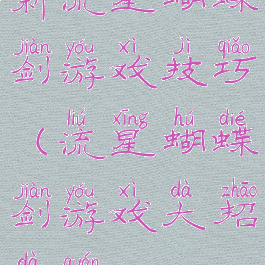 新流星蝴蝶
jiàn yóu xì jì qiǎo
剑游戏技巧
liú xīng hú dié
(流星蝴蝶
jiàn yóu xì dà zhāo
剑游戏大招
dà quán